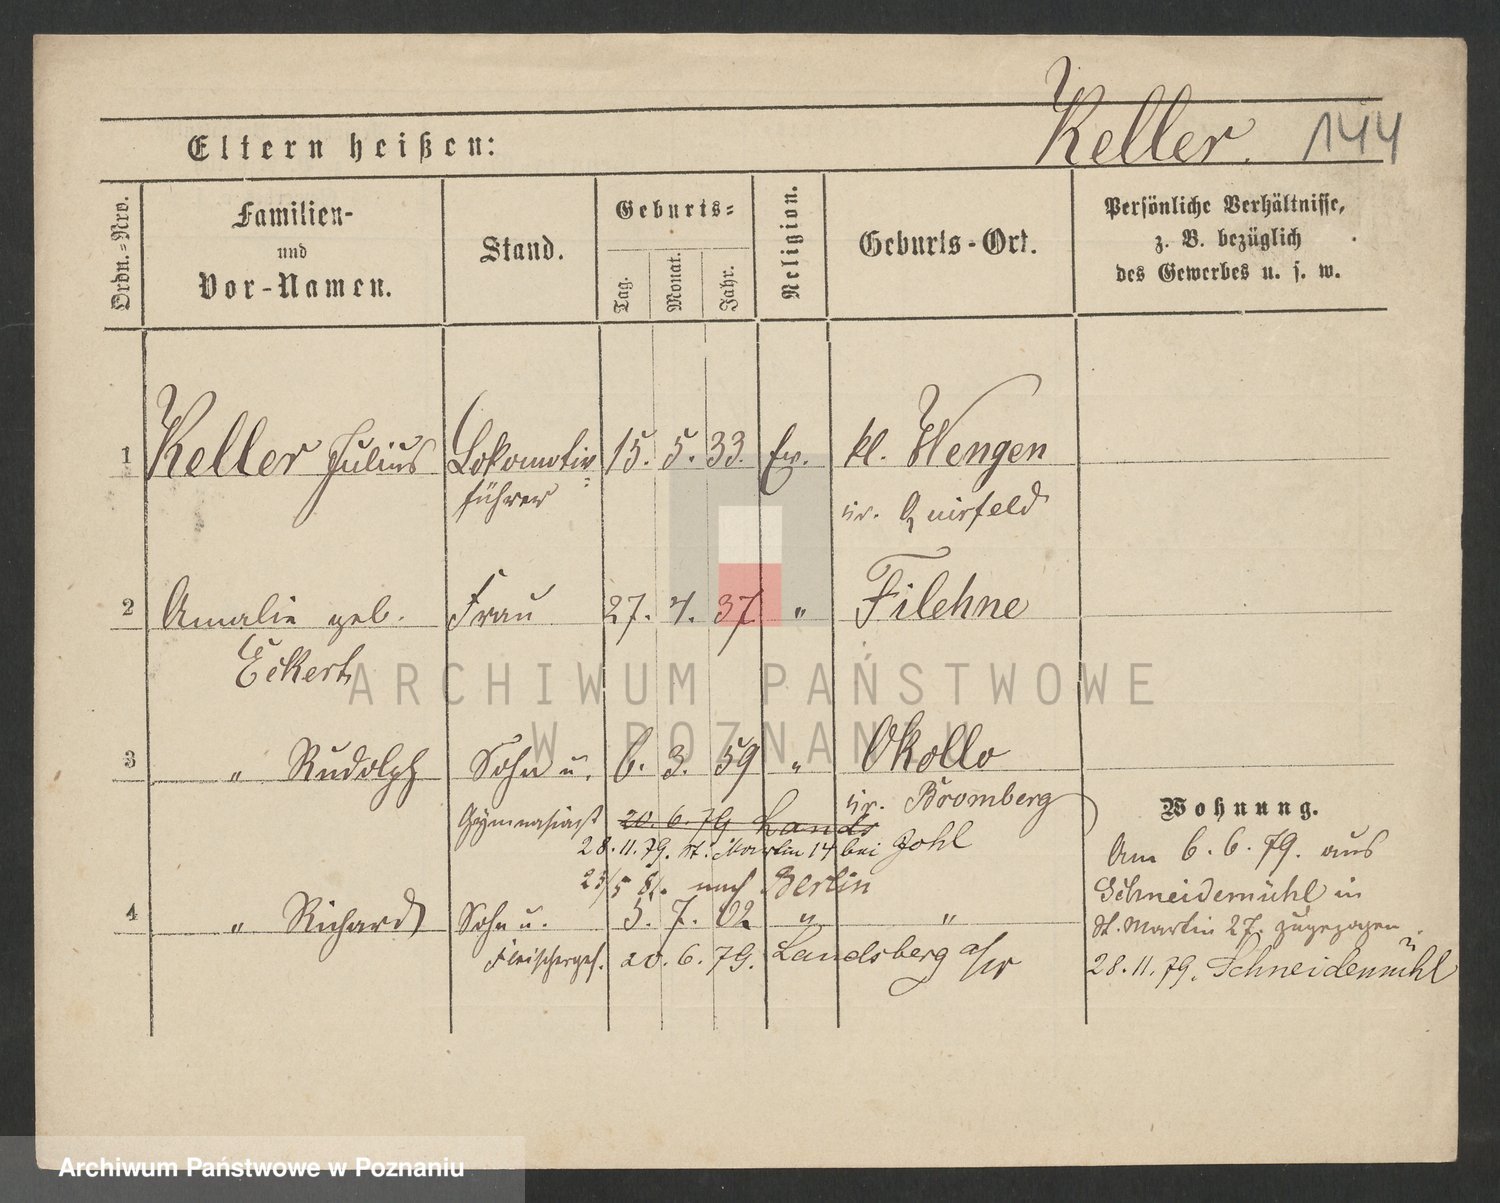 Eltern heißen:
Keller. 144
Ordn.-Nro.
Familien-
und
Vor-Namen.
Stand.
Geburts-
Tag.
Monat.
Jahr.
Religion.
Geburts-Ort.
Persönliche Verhältnisse,
z. B. bezüglich
des Gewerbes u. s. w.
1 Keller Julius Lokomotiv 15. 5. 33. Ev. kl. Wengen
führer
2 Amalie geb. Frau 27. 4. 37 " Filehne
Eckert
3 " Rudolph Sohn u. 6. 3. 59 " Okollo
Kr. Bromberg
Gymnasiast 20. 6. 79 Lands
28. 11. 79. St. Martin 14 bei
25/5 81. nach Berlin
4 " Richard Sohn u. 5. 7. 62 " "
Fleischerges. 20. 6. 79. Landsberg a/W
Wohnung.
Am 6. 6. 79. aus
Schneidemühl in
St. Martin 27. zugezogen.
28. 11. 79. Schneidemühl
ARCHIWUM PAŃSTWOWE
W POZNANIU
Archiwum Państwowe w Poznaniu